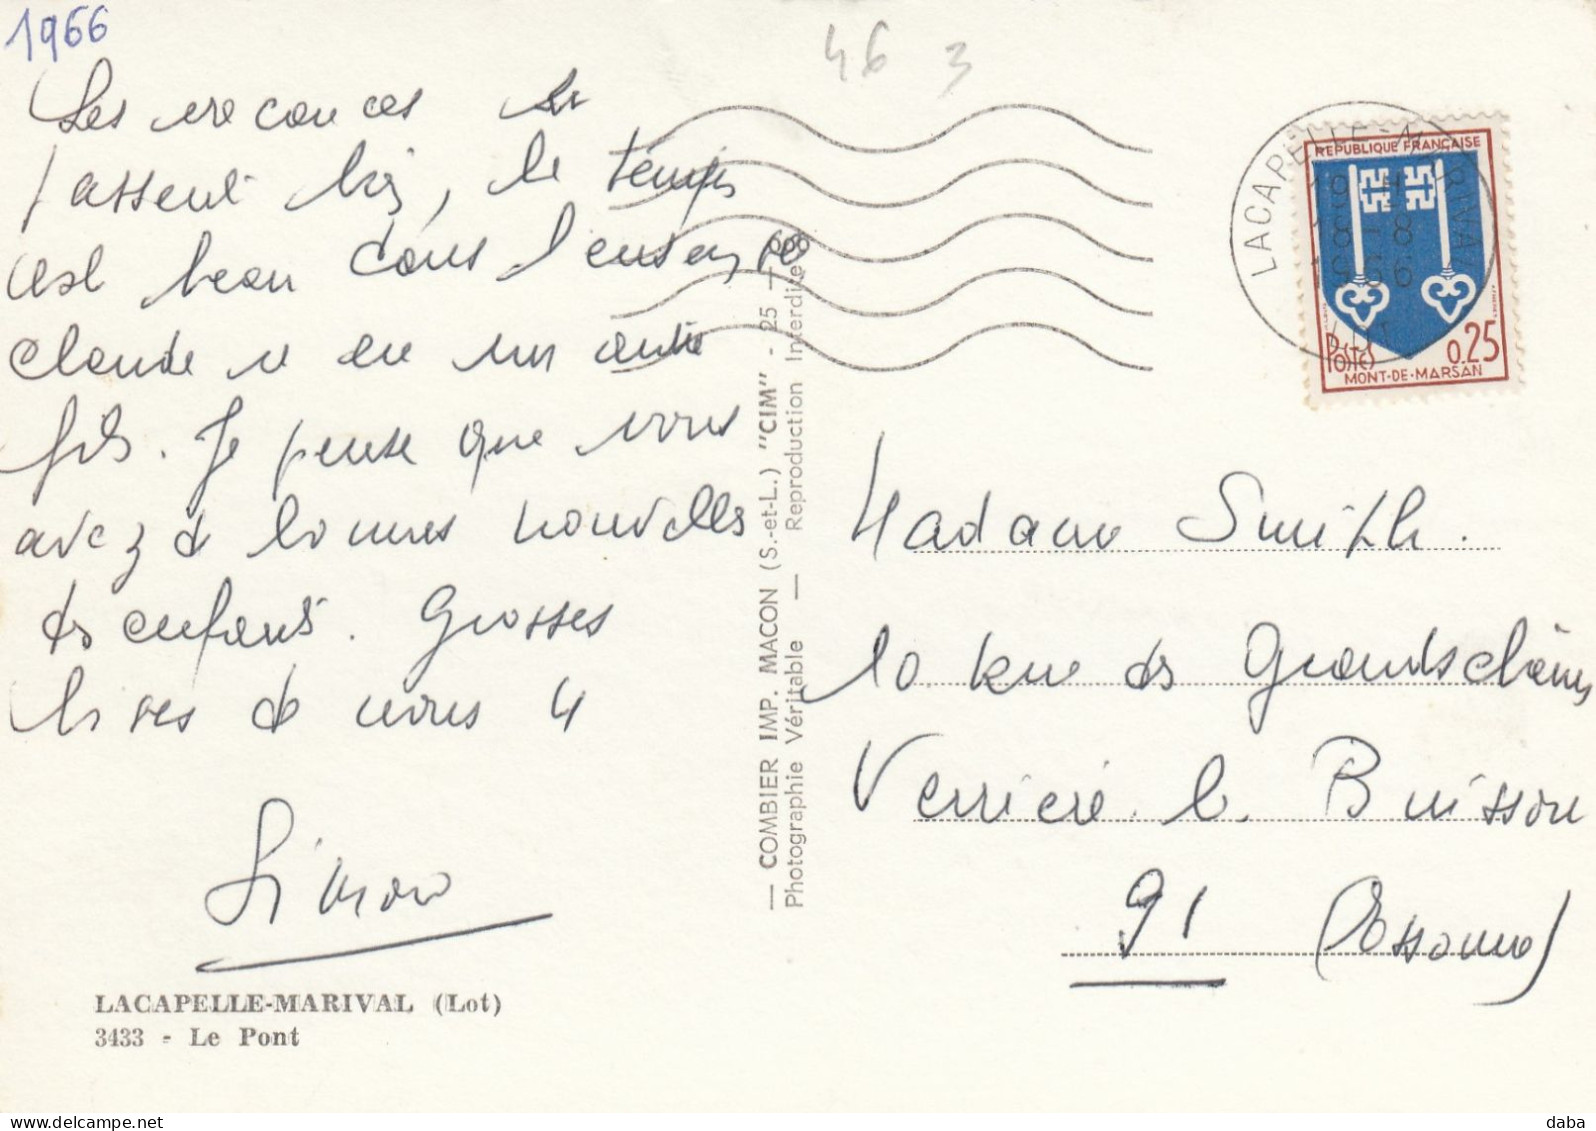 1966
46 3
Les vacances se
passent bien, le temps
est beau dans l'ensemble
Claude a eu un autre
fils. Je pense que vous
avez de bonnes nouvelles
des enfants. Grosses
bises de nous 4
Simone
LACAPELLE-MARIVAL (Lot)
3433 - Le Pont
— COMBIER IMP. MACON (S.-et-L.) "CIM" - 25 —
Photographie Véritable — Reproduction Interdite
LACAPELLE-MARIVAL
LOT
REPUBLIQUE FRANÇAISE
POSTES
0.25
MONT-DE-MARSAN
Madame Smith.
10 Rue des Grands chênes
Verrière le Buisson
91 (Essonne)
daba